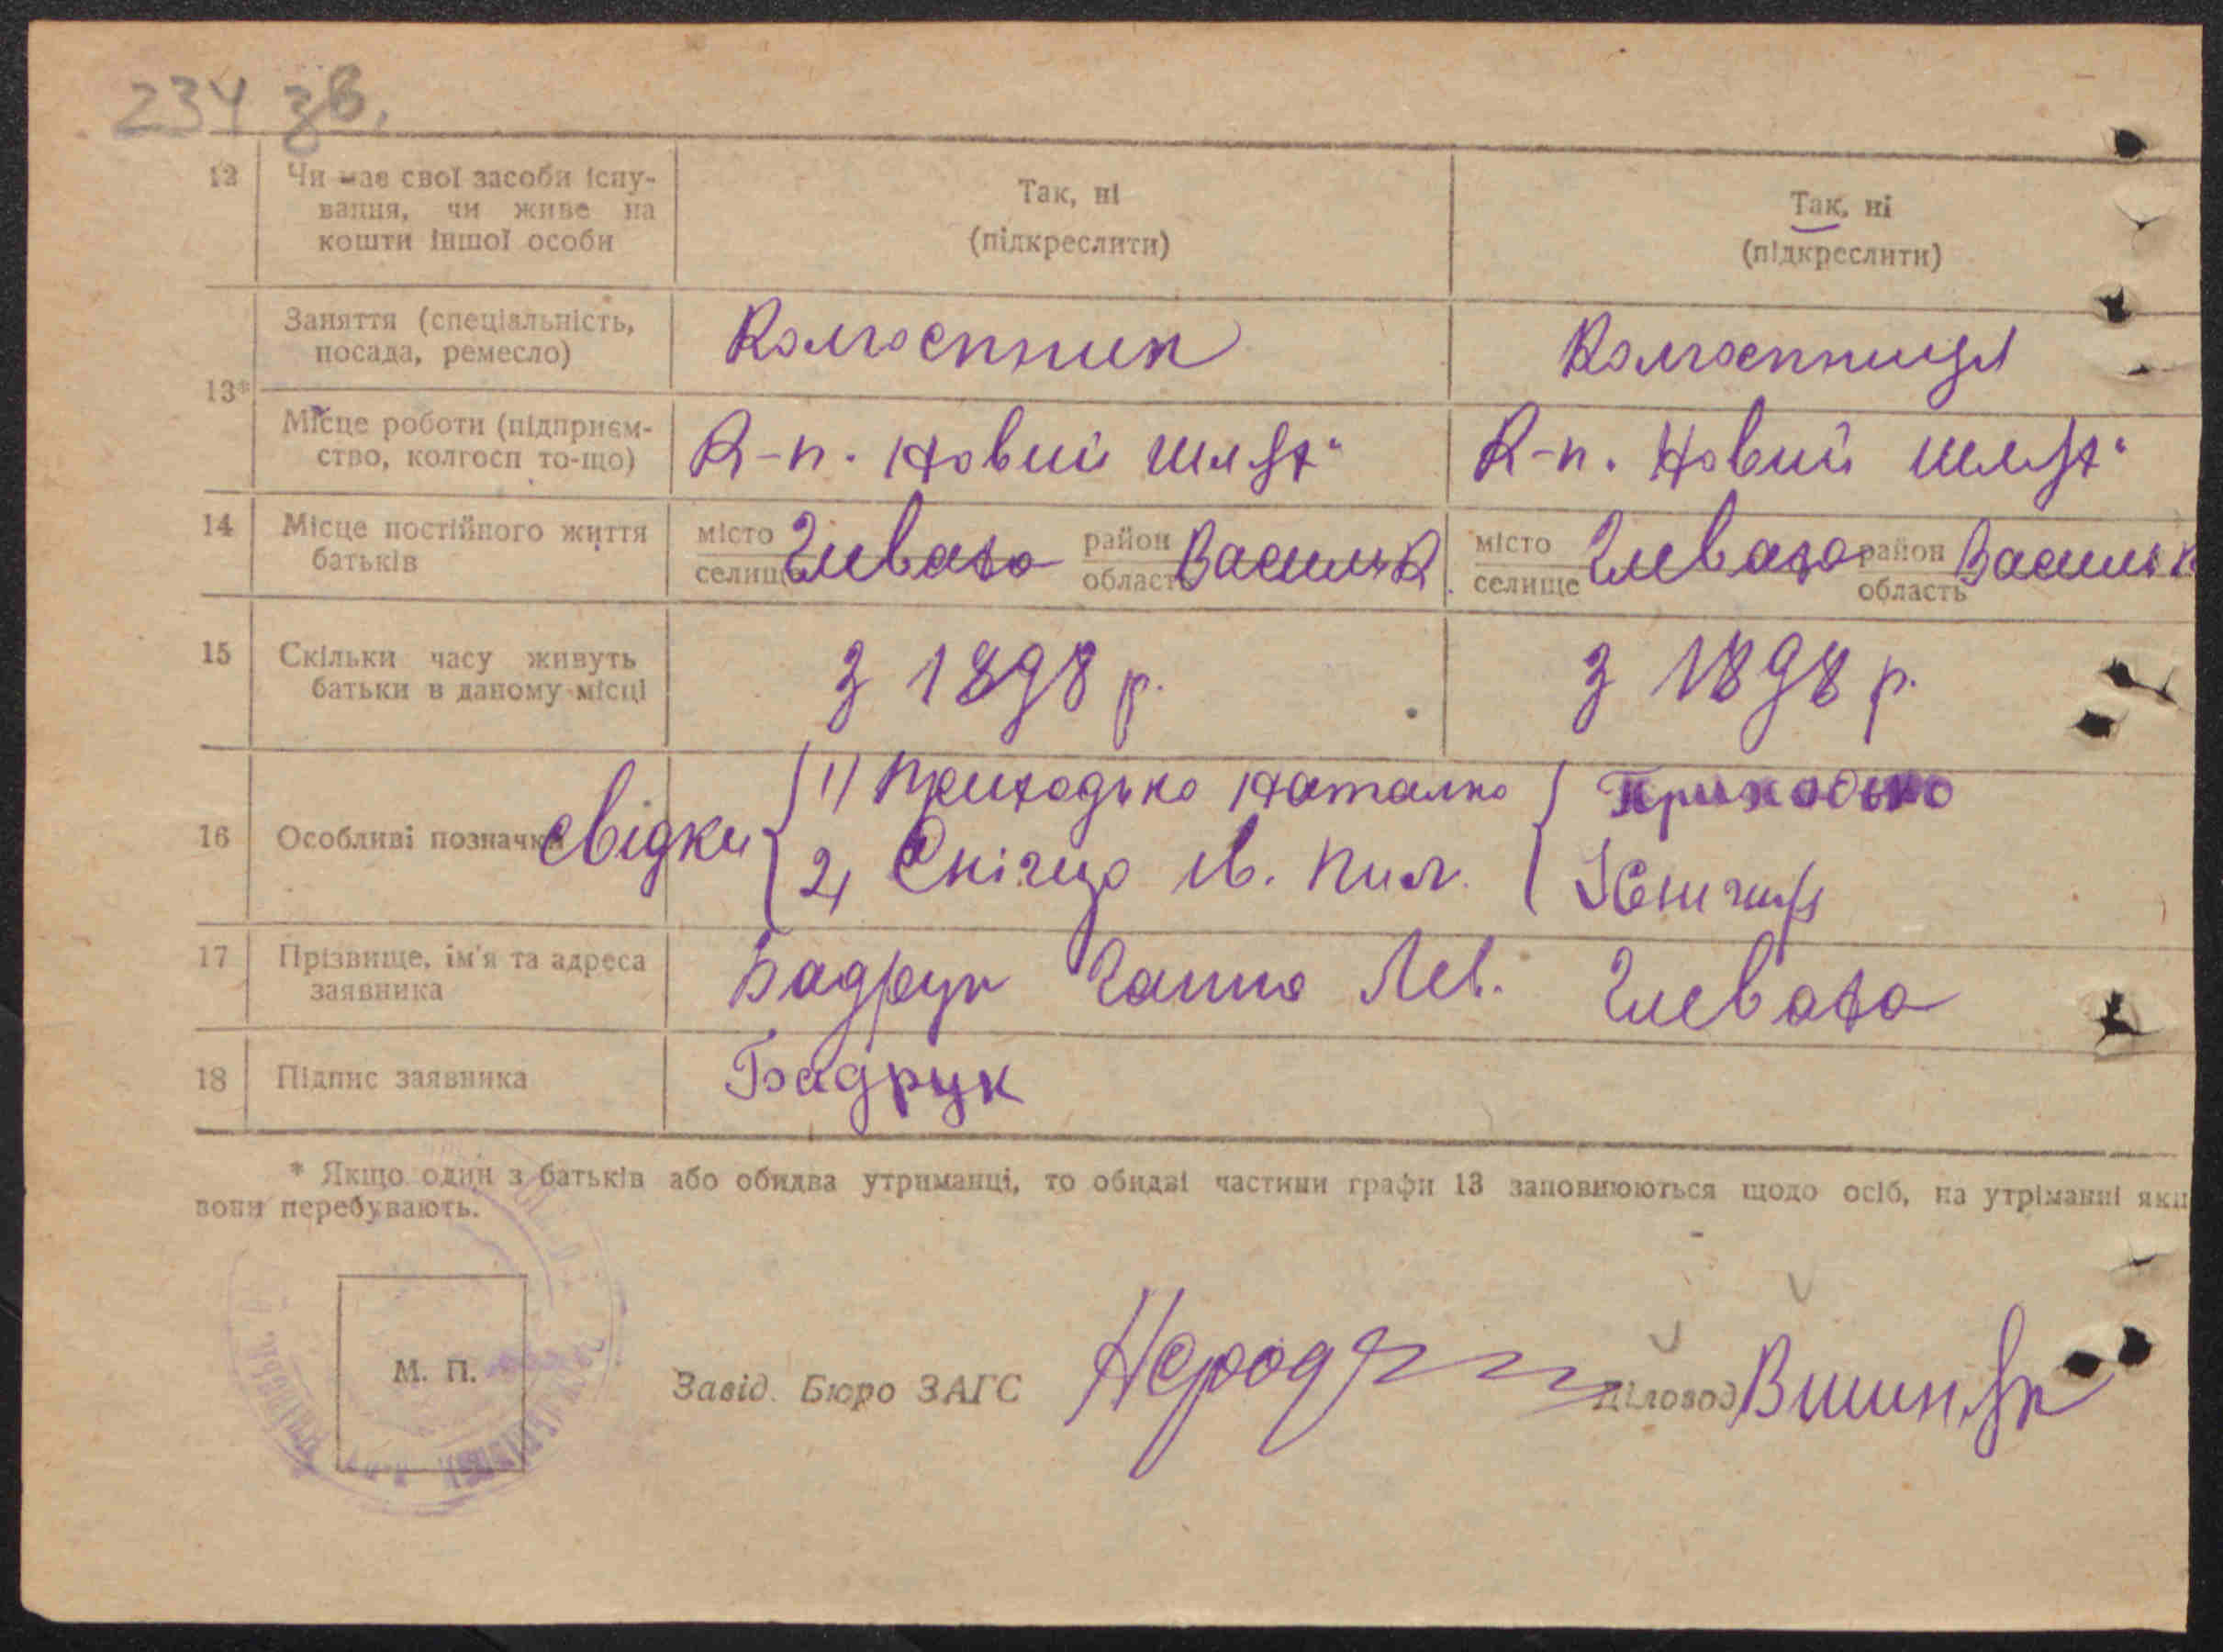 234 зв.
12 Чи має свої засоби існу-
вання, чи живе на
кошти іншої особи
Так, ні
(підкреслити)
Так, ні
(підкреслити)
13*
Заняття (спеціальність,
посада, ремесло)
Колгоспник
Колгоспниця
Місце роботи (підприєм-
ство, колгосп то-що)
К-п. Новий шлях"
К-п. Новий шлях"
14 Місце постійного життя
батьків
місто
селище
Глеваха
район
область
Васильк.
місто
селище
Глеваха
район
область
Васильк
15 Скільки часу живуть
батьки в даному місці
З 1898 р.
З 1898 р.
16 Особливі позначки
Свідки
1) Приходько Наталка
Приходько
2) Снігир Ів. Пил.
17 Прізвище, ім'я та адреса
заявника
Бадрук Ганна Лев. Глеваха
18 Підпис заявника
Бадрук
* Якщо один з батьків або обидва утриманці, то обидві частини графи 13 заповнюються щодо осіб, на утріманні яки
вони перебувають.
М. П.
Завід. Бюро ЗАГС
Діловод